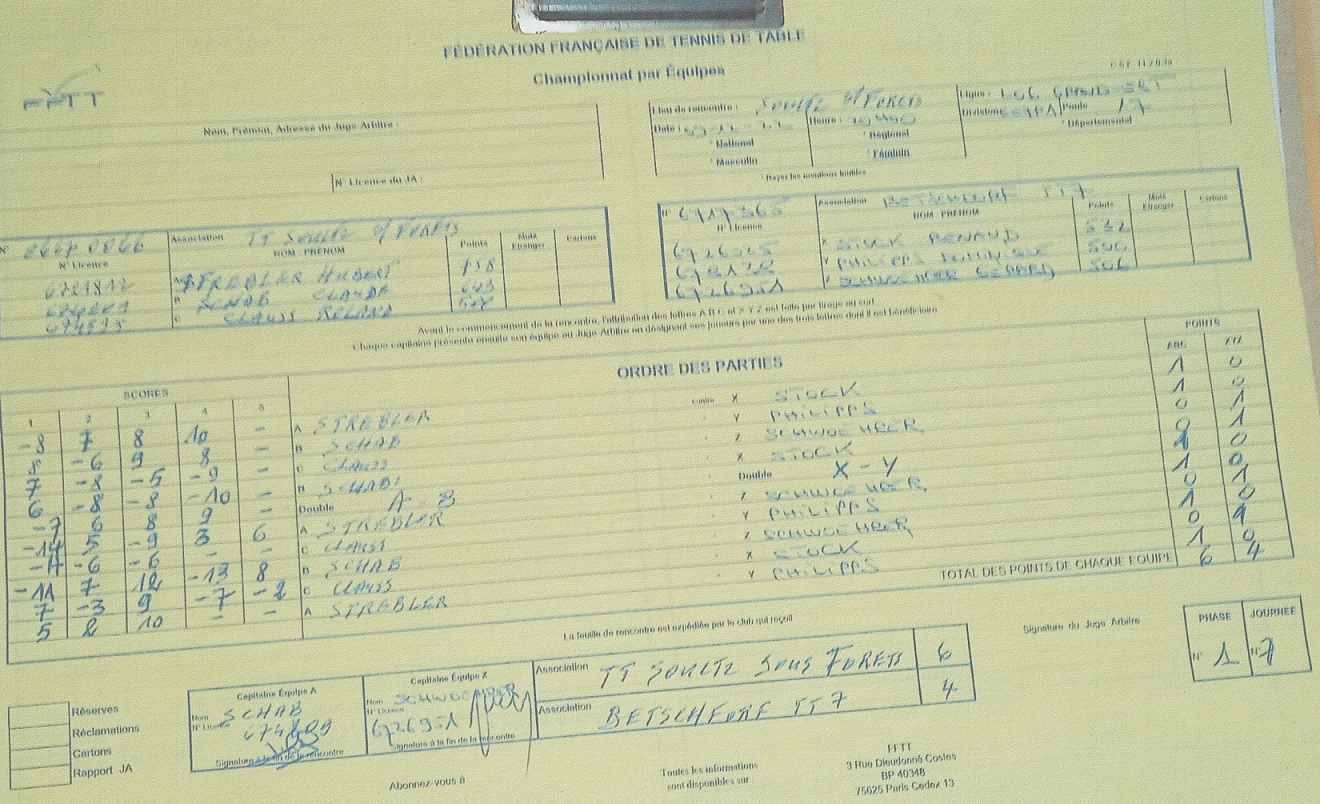 FÉDÉRATION FRANÇAISE DE TENNIS DE TABLE
Championnat par Équipes
FFTT
Nom, Prénom, Adresse du Juge Arbitre :
N° Licence du JA :
Lieu de rencontre : SOULTZ S/ FORETS
Ligue : GRAND EST
Date : Heure :
Division Poule 17
National Régional Départemental
Masculin Féminin
Rayer les mentions inutiles
N° 0667 0066 Association TT SOULTZ S/ FORETS
N° Licence NOM - PRÉNOM Points Muté Etranger Cartons
STREBLER HUBERT 758
B SCHAB
C CLAUSS ROLAND
N° 6717365 Association BETSCHDORF TT 7
N° Licence NOM - PRÉNOM Points Muté Etranger Cartons
X STOCK RENAUD 532
Y PHILIPPS DOMINIQUE
6726951 Z SCHWOEHRER GERARD
Avant le commencement de la rencontre, l'attribution des lettres A B C et X Y Z est faite par tirage au sort
Chaque capitaine présente ensuite son équipe au Juge Arbitre en désignant ses joueurs par une des trois lettres dont il est bénéficiaire
SCORES ORDRE DES PARTIES POINTS
1 2 3 4 5 ABC XYZ
-8 7 8 10 - A STREBLER contre X STOCK 1 0
-6 9 8 - B SCHAB Y PHILIPPS 1 0
7 -8 -5 -9 - C CLAUSS Z SCHWOEHRER 0 1
6 -8 -8 -10 - B SCHAB X STOCK 0 1
-7 6 8 9 - Double A - B Double X - Y 1 0
-14 5 -9 3 6 A STREBLER Z SCHWOEHRER 1 0
-6 -6 - - C CLAUSS Y PHILIPPS 0 1
-11 7 12 -13 8 B SCHAB Z SCHWOEHRER 1 0
7 -3 9 -7 -2 C CLAUSS X STOCK 0 1
5 8 10 - - A STREBLER Y PHILIPPS 1 0
TOTAL DES POINTS DE CHAQUE EQUIPE 6 4
La feuille de rencontre est expédiée par le club qui reçoit
Signature du Juge Arbitre
PHASE JOURNEE
N° 1 N° 7
Réserves
Réclamations
Cartons
Rapport JA
Capitaine Équipe A
Nom SCHAB
N° Licence
Signature à la fin de la rencontre
Capitaine Équipe X
Nom SCHWOEHRER
N° Licence 6726951
Signature à la fin de la rencontre
Association TT SOULTZ SOUS FORETS 6
Association BETSCHDORF TT 7 4
Abonnez-vous à
Toutes les informations
sont disponibles sur
FFTT
3 Rue Dieudonné Costes
BP 40348
75625 Paris Cedex 13